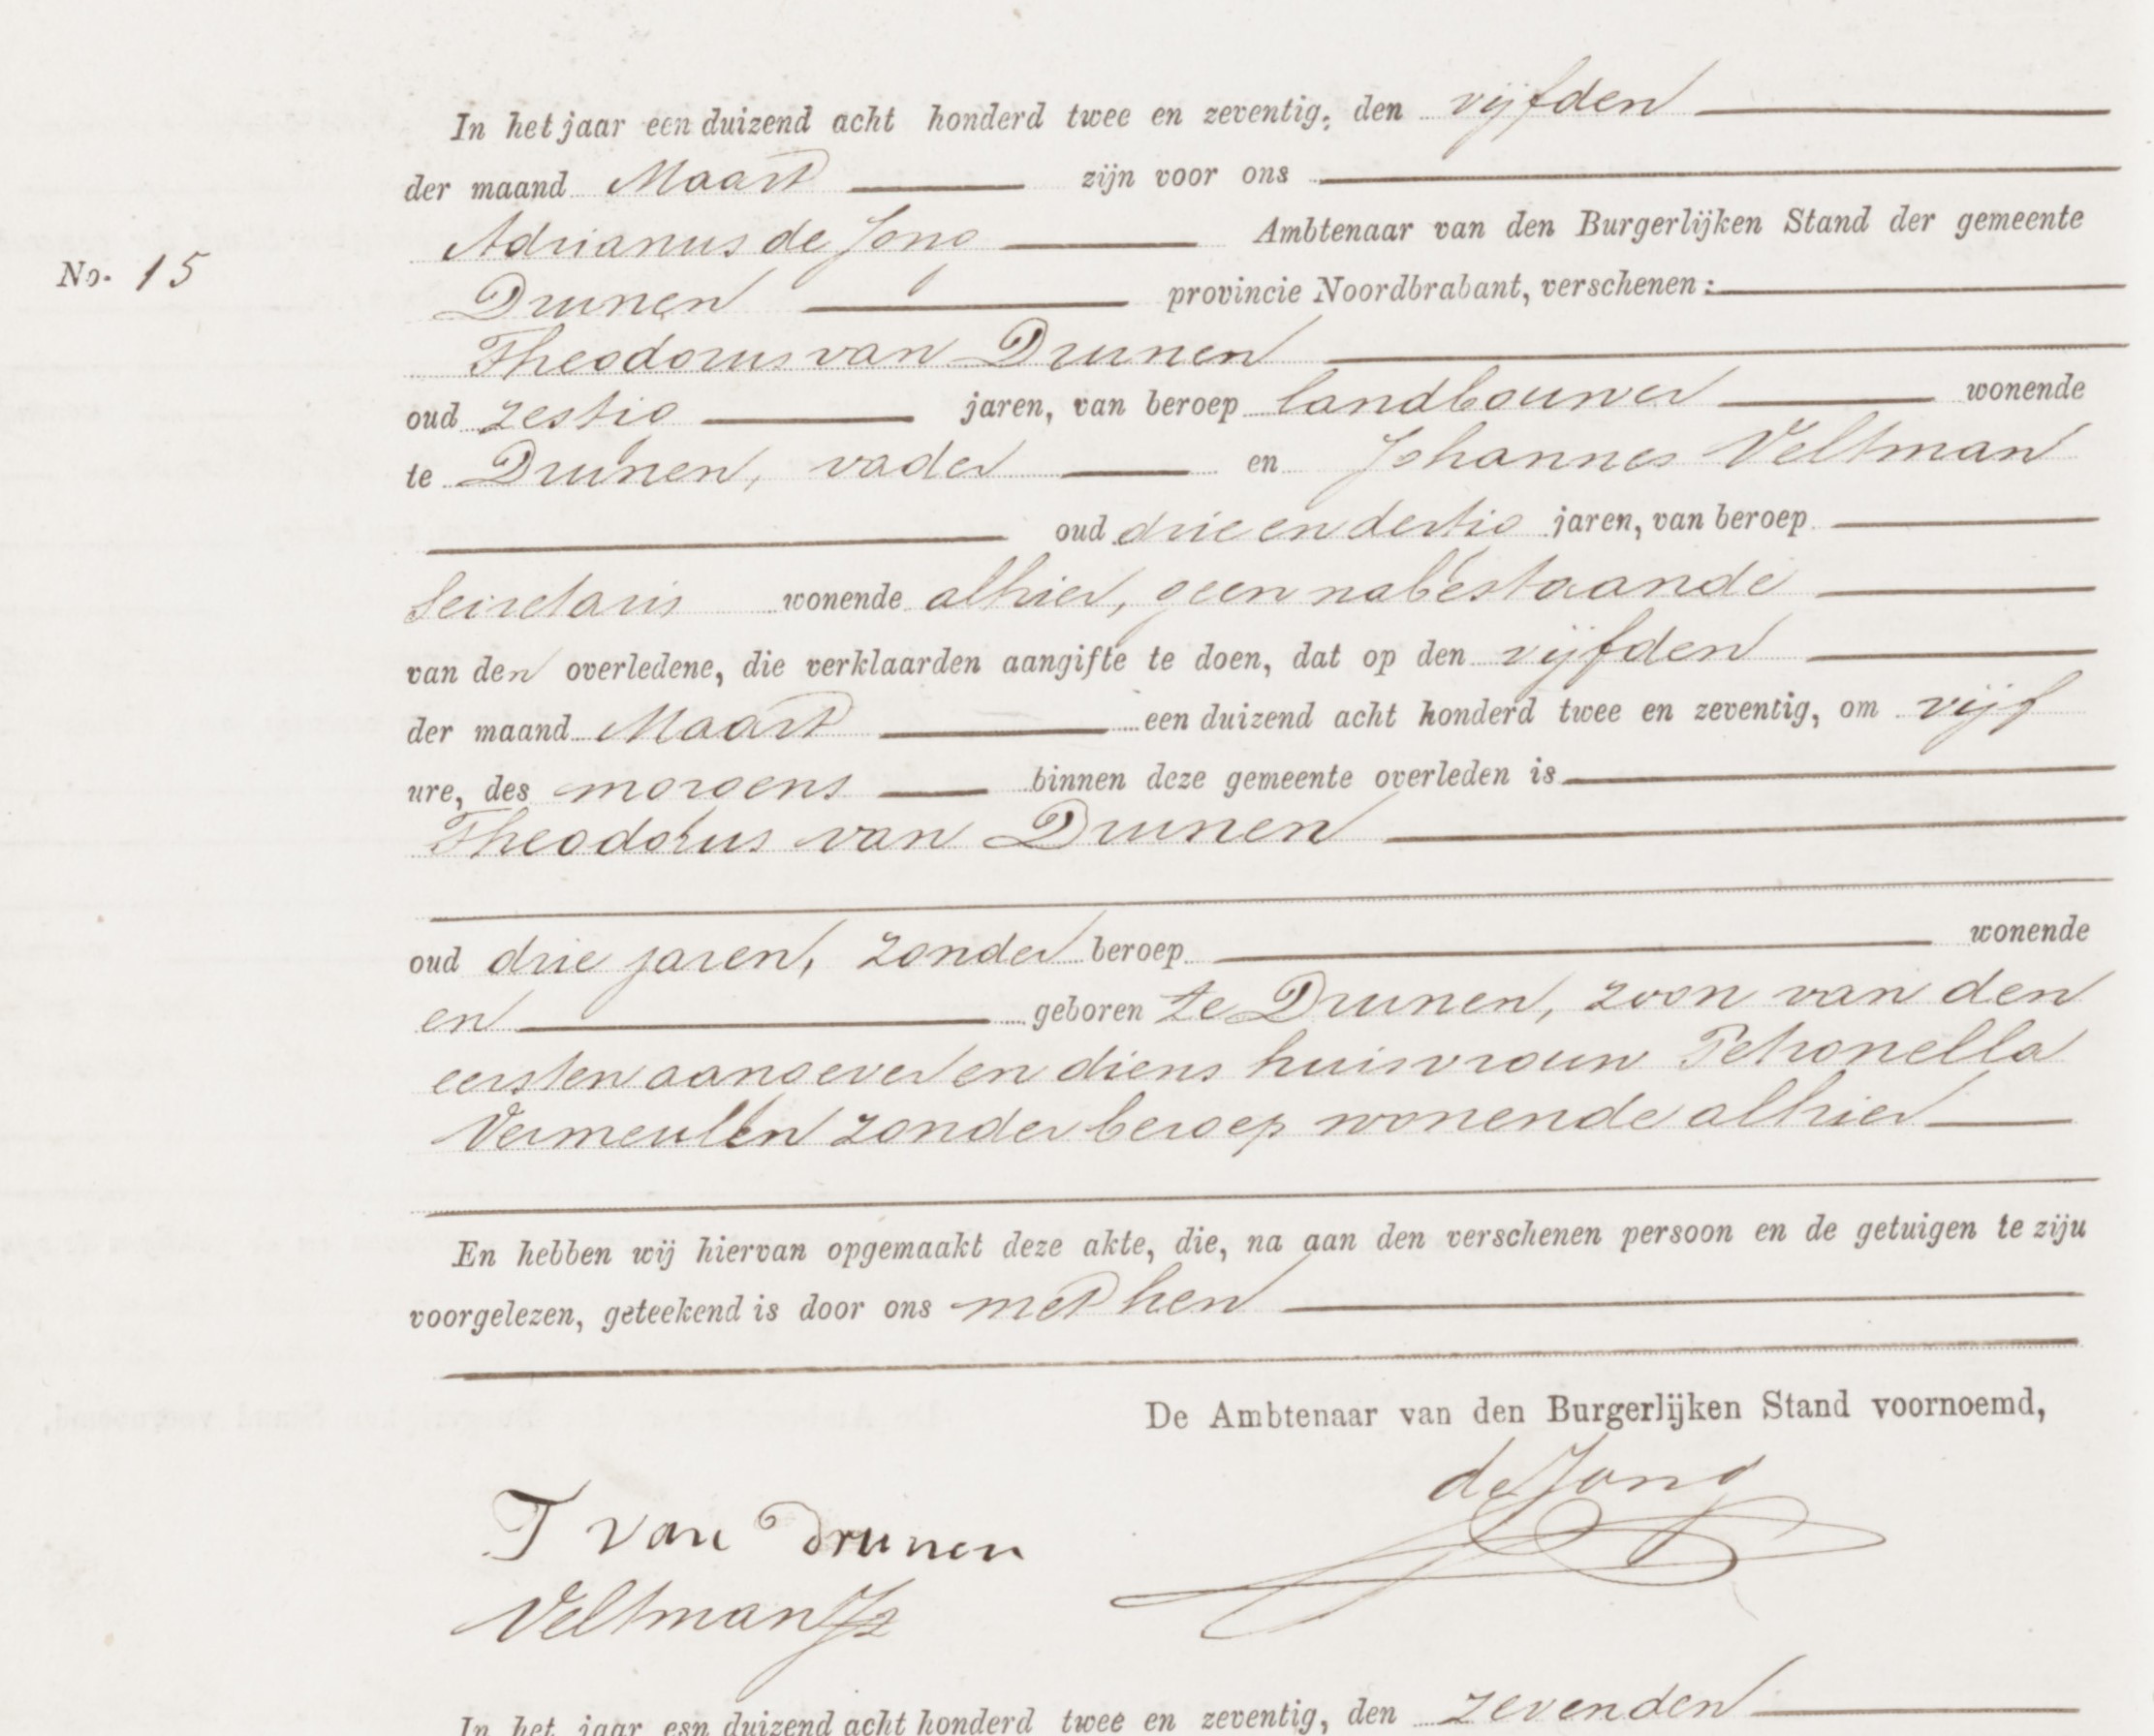 In het jaar een duizend acht honderd twee en zeventig, den vijfden
der maand Maart zijn voor ons
Adrianus de Jong Ambtenaar van den Burgerlijken Stand der gemeente
No. 15
Drunen provincie Noordbrabant, verschenen:
Theodorus van Drunen
oud zestig jaren, van beroep landbouwer wonende
te Drunen, vader en Johannes Veltman
oud drie en dertig jaren, van beroep
Secretaris wonende alhier, geen nabestaande
van den overledene, die verklaarden aangifte te doen, dat op den vijfden
der maand Maart een duizend acht honderd twee en zeventig, om vijf
ure, des morgens binnen deze gemeente overleden is
Theodorus van Drunen
oud drie jaren, zonder beroep wonende
en geboren te Drunen, zoon van den
eersten aangever en diens huisvrouw Petronella
Vermeulen zonder beroep wonende alhier
En hebben wij hiervan opgemaakt deze akte, die, na aan den verschenen persoon en de getuigen te ziju
voorgelezen, geteekend is door ons met hen
De Ambtenaar van den Burgerlijken Stand voornoemd,
de Jong
T van Drunen
Veltman Jz
In het jaar een duizend acht honderd twee en zeventig, den zevenden